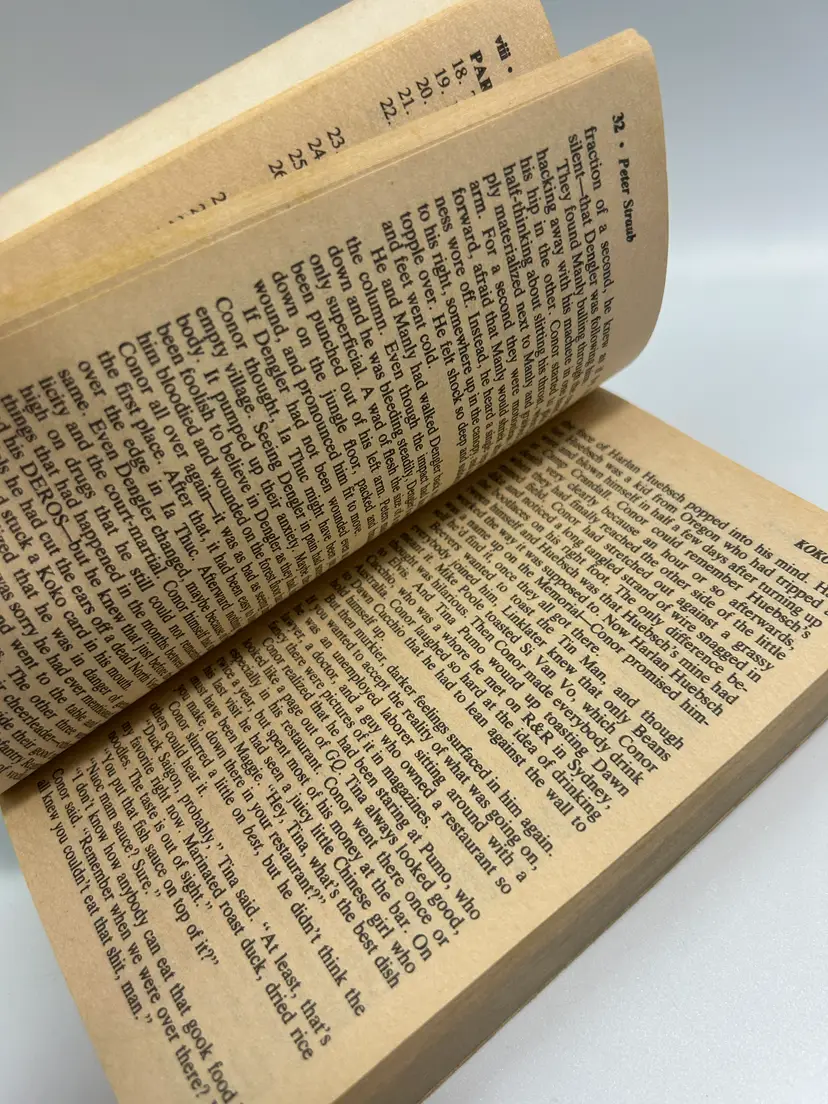 viii •
PAR
18.
19.
20.
21.
22.
23
24
25
26
32 • Peter Straub
fraction of a second, he knew
silent—that Dengler was following
They found Manly bulling through
hacking away with his machete in one
his hip in the other. Conor started
half-thinking about slitting his throat
ply materialized next to Manly and
arm. For a second they were
forward, afraid that Manly would
ness wore off. Instead, he heard a
to his right, somewhere up in the canopy,
topple over. He felt shock so deep
and feet went cold.
He and Manly had walked Dengler
the column. Even though the impact had
down and he was bleeding steadily, Dengler
only superficial. A wad of flesh the size
been punched out of his left arm. Peters
down on the jungle floor, packed and
wound, and pronounced him fit to move.
If Dengler had not been wounded
Conor thought, Ia Thuc might have been
empty village. Seeing Dengler in pain had
body. It pumped up their anxiety. Maybe
been foolish to believe in Dengler as they
him bloodied and wounded on the forest floor
Conor all over again—it was as bad as seeing
the first place. After that, it had been easy
over the edge in Ia Thuc. Afterward nothing
same. Even Dengler changed, maybe because
licity and the court-martial. Conor himself
high on drugs that he still could not
things that had happened in the months between
his DEROS—but he knew that just before
he had cut the ears off a dead North
stuck a Koko card in his mouth.
that he was in danger of
was sorry he had ever mentioned
went to the table and
The other three
cheerleader
KOKO
of Harlan Huebsch popped into his mind.
Huebsch was a kid from Oregon who had tripped
and blown himself in half a few days after turning up
Camp Crandall. Conor could remember Huebsch's
very clearly because an hour or so afterwards,
they had finally reached the other side of the little
field, Conor had stretched out against a grassy
and noticed a long tangled strand of wire snagged in
on his right foot. The only difference be-
himself and Huebsch was that Huebsch's mine had
the way it was supposed to. Now Harlan Huebsch
name up on the Memorial—Conor promised him-
find it, once they all got there.
Beevers wanted to toast the Tin Man, and though
joined him, Linklater knew that only Beans
it. Mike Poole toasted Si Van Vo, which Conor
was hilarious. Then Conor made everybody drink
And Tina Pumo wound up toasting Dawn
who was a whore he met on R&R in Sydney,
Australia. Conor laughed so hard at the idea of drinking
Dawn Cucchio that he had to lean against the wall to
himself up.
But then murkier, darker feelings surfaced in him again.
you wanted to accept the reality of what was going on,
was an unemployed laborer sitting around with a
lawyer, a doctor, and a guy who owned a restaurant so
there were pictures of it in magazines.
Conor realized that he had been staring at Pumo, who
looked like a page out of GQ. Tina always looked good,
especially in his restaurant. Conor went there once or
twice a year, but spent most of his money at the bar. On
last visit he had seen a juicy little Chinese girl who
must have been Maggie. "Hey, Tina, what's the best dish
you make, down there in your restaurant?"
Conor slurred a little on best, but he didn't think the
others could hear it.
"Duck Saigon, probably," Tina said. "At least, that's
my favorite right now. Marinated roast duck, dried rice
noodles. The taste is out of sight."
"You put that fish sauce on top of it?"
"Nuoc mam sauce? Sure."
"I don't know how anybody can eat that gook food,"
Conor said. "Remember when we were over there?
all knew you couldn't eat that shit, man."